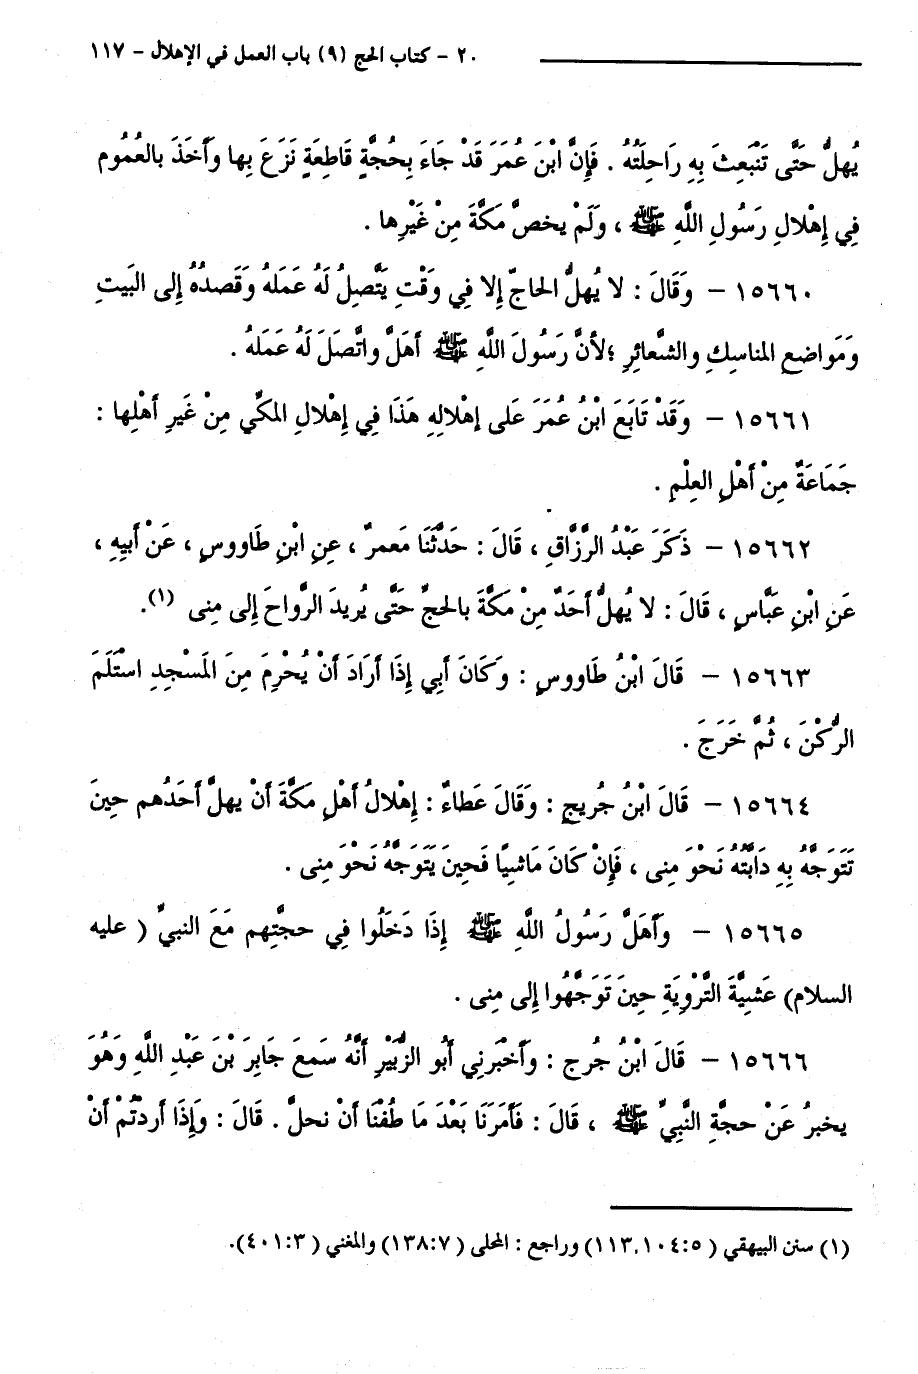 ٢٠ - كتاب الحج (٩) باب العمل في الإهلال - ١١٧
يُهلُّ حَتَّى تَنْبَعِثَ بِهِ رَاحِلَتُهُ . فَإِنَّ ابْنَ عُمَرَ قَدْ جَاءَ بِحُجَّةٍ قَاطِعَةٍ نَزَعَ بِها وأَخَذَ بالعُمُومِ
فِي إِهْلالِ رَسُولِ اللَّهِ ﷺ ، وَلَمْ يخصَّ مَكَّةَ مِنْ غَيْرِها .
١٥٦٦٠ - وَقَالَ : لا يُهلُّ الحاجّ إلا فِي وَقْتٍ يَتَّصِلُ لَهُ عَمَلهُ وَقَصدُهُ إِلى البَيتِ
وَمَواضعِ المناسِكِ والشَّعائِرِ ؛لأنَّ رَسُولَ اللَّهِ ﷺ أَهَلَّ واتَّصَلَ لَهُ عَمَلهُ .
١٥٦٦١ - وَقَدْ تَابَعَ ابْنُ عُمَرَ عَلى إهْلالِهِ هَذَا فِي إِهْلالِ المكِّي مِنْ غَيرِ أَهْلِها :
جَمَاعَةٌ مِنْ أَهْلِ العِلْمِ .
١٥٦٦٢ - ذَكَرَ عَبْدُ الرَّزَّاقِ ، قَالَ : حَدَّثَنَا مَعمرٌ ، عَنِ ابْنِ طَاووسٍ ، عَنْ أَبِيهِ ،
عَنِ ابْنِ عَبَّاسٍ ، قَالَ : لا يُهلُّ أَحَدٌ مِنْ مَكَّةَ بالحجِّ حَتَّى يُريدَ الرَّواحَ إِلى مِنى (١).
١٥٦٦٣ - قَالَ ابْنُ طَاووسٍ : وَكَانَ أَبِي إِذَا أَرَادَ أَنْ يُحْرِمَ مِنَ المَسْجِدِ اسْتَلَمَ
الرُّكْنَ ، ثُمَّ خَرَجَ .
١٥٦٦٤ - قَالَ ابْنُ جُريجٍ : وَقَالَ عَطاءٌ : إِهْلالُ أَهْلِ مكَّةَ أَنْ يهلَّ أَحَدُهم حِينَ
تَتَوَجَّهُ بِهِ دَابَّتُهُ نَحْوَ مِنى ، فَإِنْ كَانَ مَاشيًا فَحِينَ يَتَوَجَّهُ نَحْوَ مِنى .
١٥٦٦٥ - وَأَهَلَّ رَسُولُ اللَّهِ ﷺ إِذَا دَخَلُوا فِي حجَّتِهم مَعَ النبيِّ ( عليه
السلام) عَشيَّةَ التَّرْوِيَةِ حِينَ تَوَجَّهُوا إِلى مِنى .
١٥٦٦٦ - قَالَ ابْنُ جُرج : وَأَخْبَرنِي أَبُو الزُّبَيْرِ أَنَّهُ سَمعَ جَابِرَ بْنَ عَبْدِ اللَّهِ وَهُوَ
يخبرُ عَنْ حجَّةِ النَّبِيِّ ﷺ ، قَالَ : فَأَمَرَنَا بَعْدَ مَا طُفْنَا أَنْ نحلَّ . قَالَ : وَإِذَا أَردْتُمْ أَنْ
(١) سنن البيهقي ( ٥:١٠٤،١١٣) وراجع : المحلى (٧:١٣٨) والمغني (٣:٤٠١).